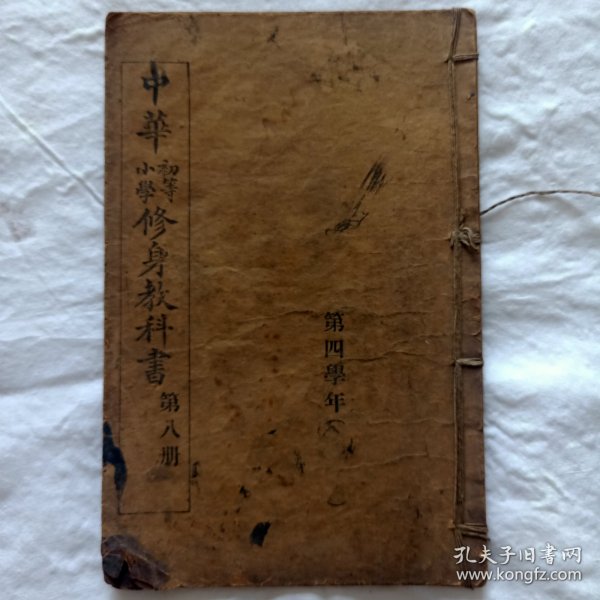 中華初等小學修身教科書 第八册
第四學年
孔夫子旧書网
www.kongfz.com